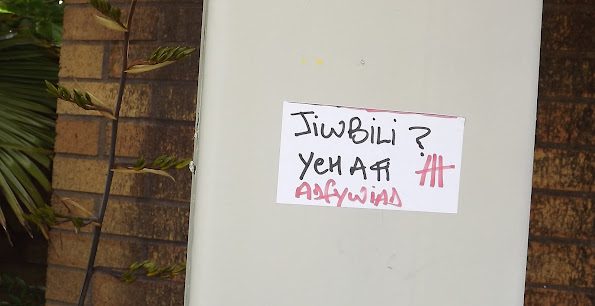 JiWBiLi ?
YCH A FI
ADfyWiAD